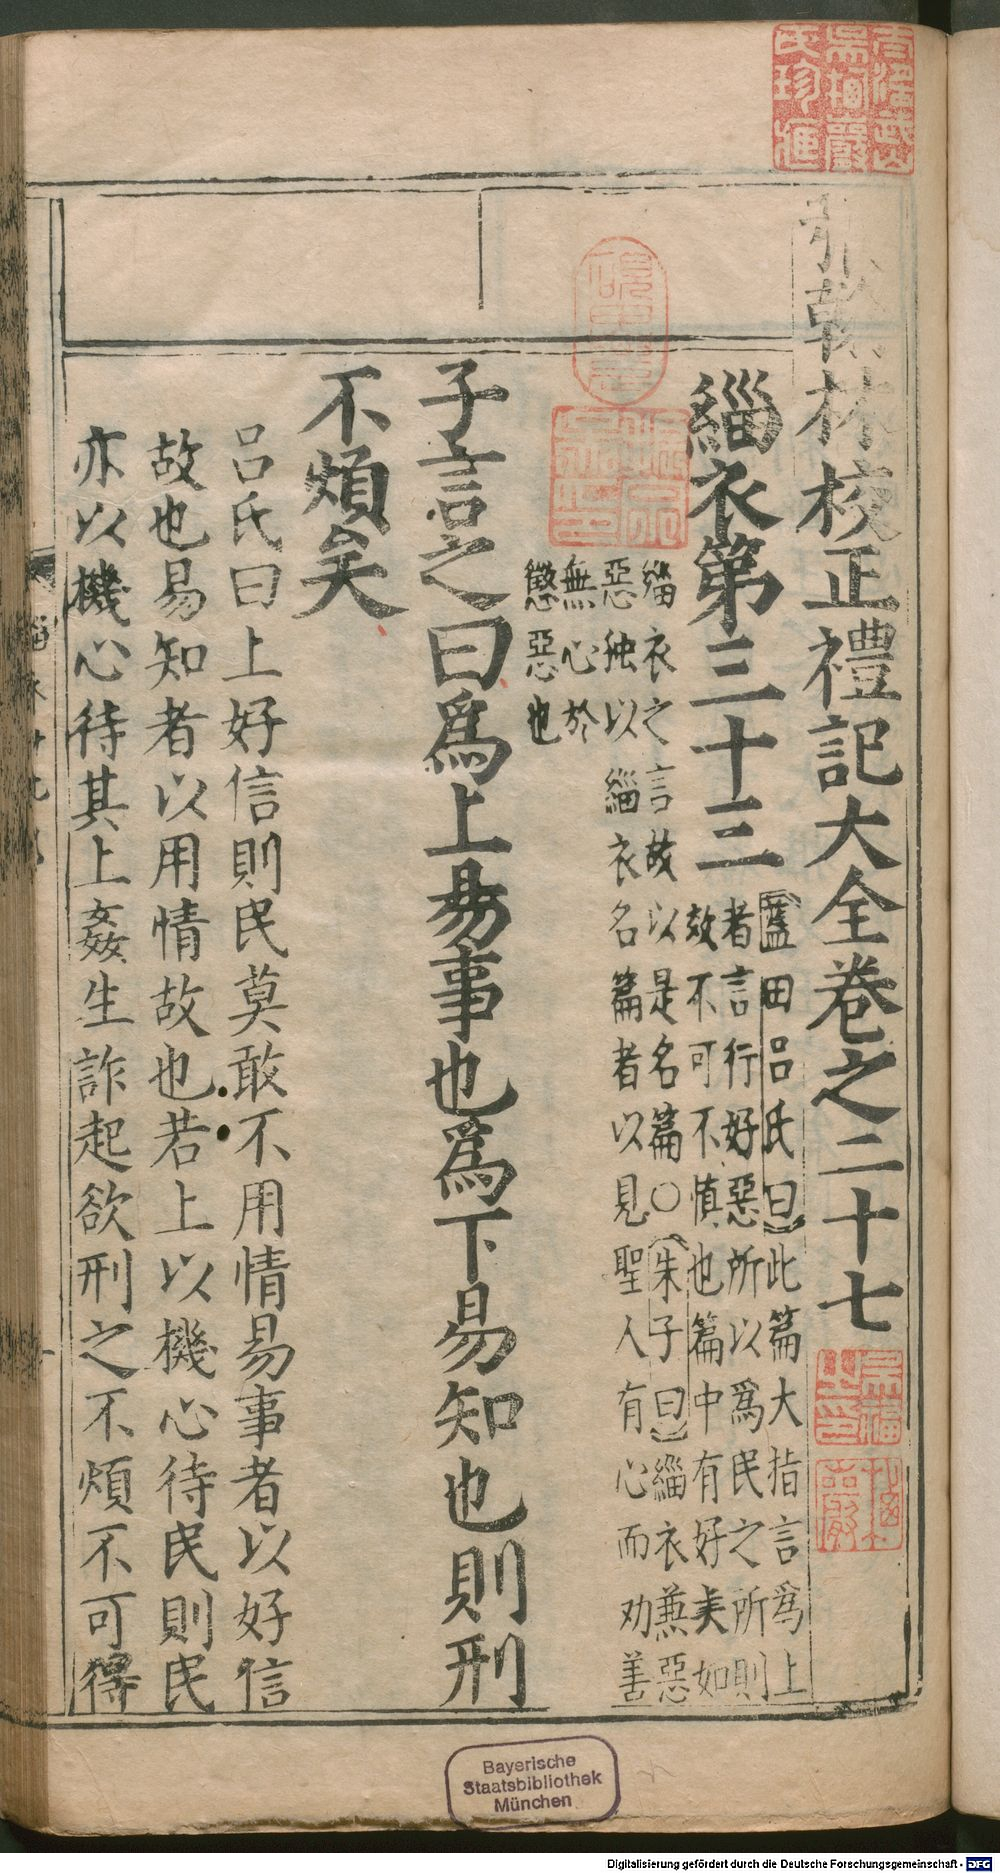 張翰林校正禮記大全卷之二十七
緇衣第三十三
藍田呂氏曰此篇大指言爲上
者言行好惡所以爲民之所則
效不可不慎也篇中有好美如
緇衣之言故以是名篇○朱子曰緇衣兼惡
惡独以緇衣名篇者以見聖人有心而劝善
無心於
懲惡也
子言之曰爲上易事也爲下易知也則刑
不煩矣
呂氏曰上好信則民莫敢不用情易事者以好信
故也易知者以用情故也若上以機心待民則民
亦以機心待其上姦生詐起欲刑之不煩不可得
Bayerische
Staatsbibliothek
München
Digitalisierung gefördert durch die Deutsche Forschungsgemeinschaft - DFG